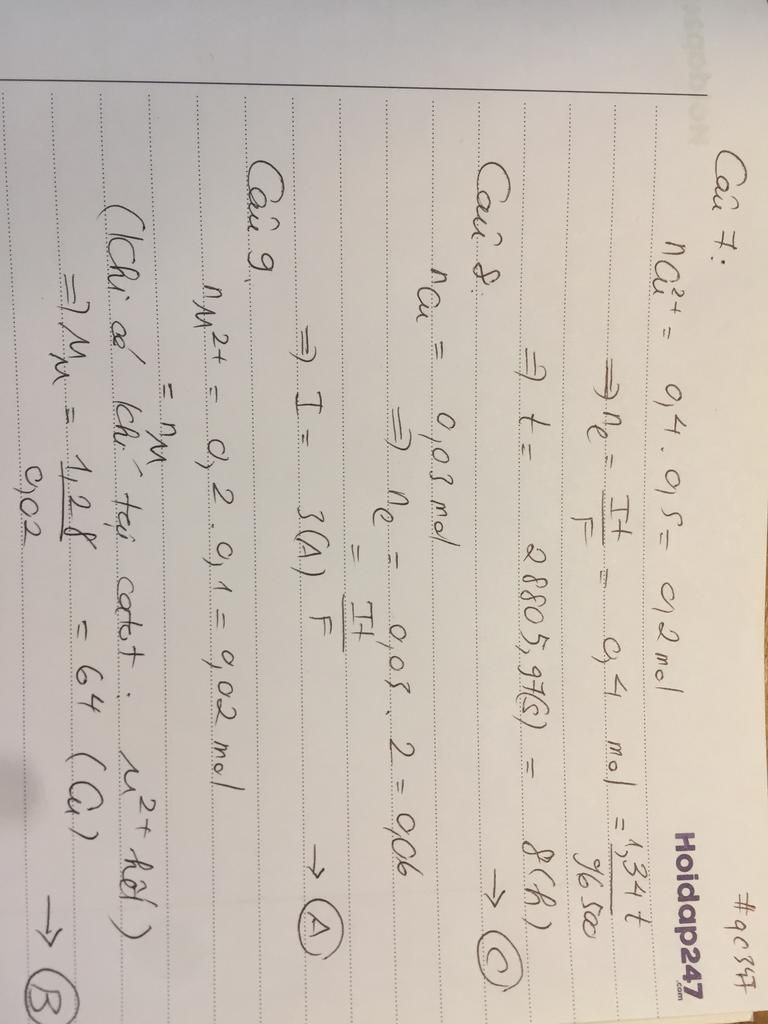 #gc347
Hoidap247
.com
Câu 7:
nCu²⁺ = 0,4 . 0,5 = 0,2 mol
⇒ ne = It/F = 0,4 mol = 1,34t/96500
⇒ t = 28805,97(s) = 8(h) → C
Câu 8:
nCu = 0,03 mol
⇒ ne = 0,03 . 2 = 0,06
= It/F
⇒ I = 3(A) → A
Câu 9.
nM²⁺ = 0,2 . 0,1 = 0,02 mol
= nM
(Khi có khí tại catot: M²⁺ hết)
⇒ MM = 1,28/0,02 = 64 (Cu) → B